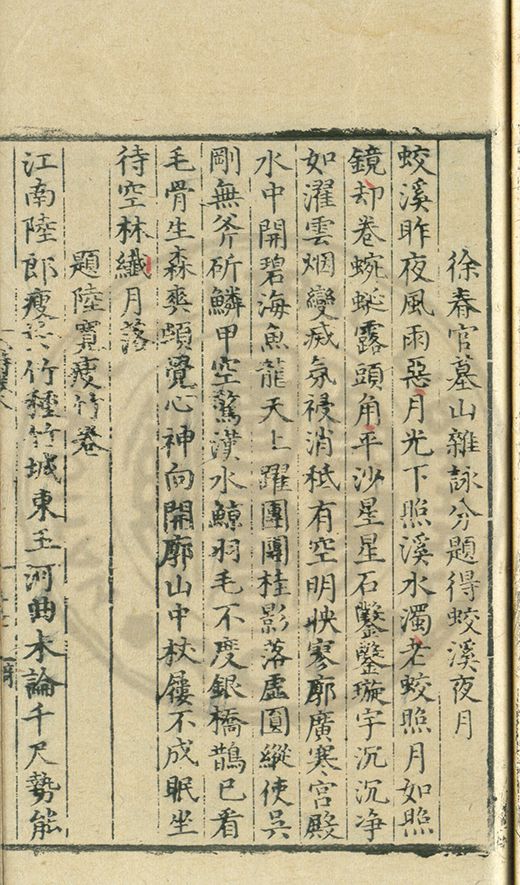 徐春官墓山雜詠分題得蛟溪夜月
蛟溪昨夜風雨惡月光下照溪水濁老蛟照月如照
鏡却卷蜿蜒露頭角平沙星星石鑿鑿璇宇沉沉净
如濯雲烟變滅氛祲消秪有空明映寥廓廣寒宮殿
水中開碧海魚龍天上躍團團桂影落虛圓縱使吳
剛無斧斫鱗甲空驚漢水鯨羽毛不度銀橋鵲已看
毛骨生森爽頓覺心神向開廓山中杖屨不成眠坐
待空林纖月落
題陸寬瘦竹卷
江南陸郎瘦竹種竹城東玉河曲未論千尺勢能